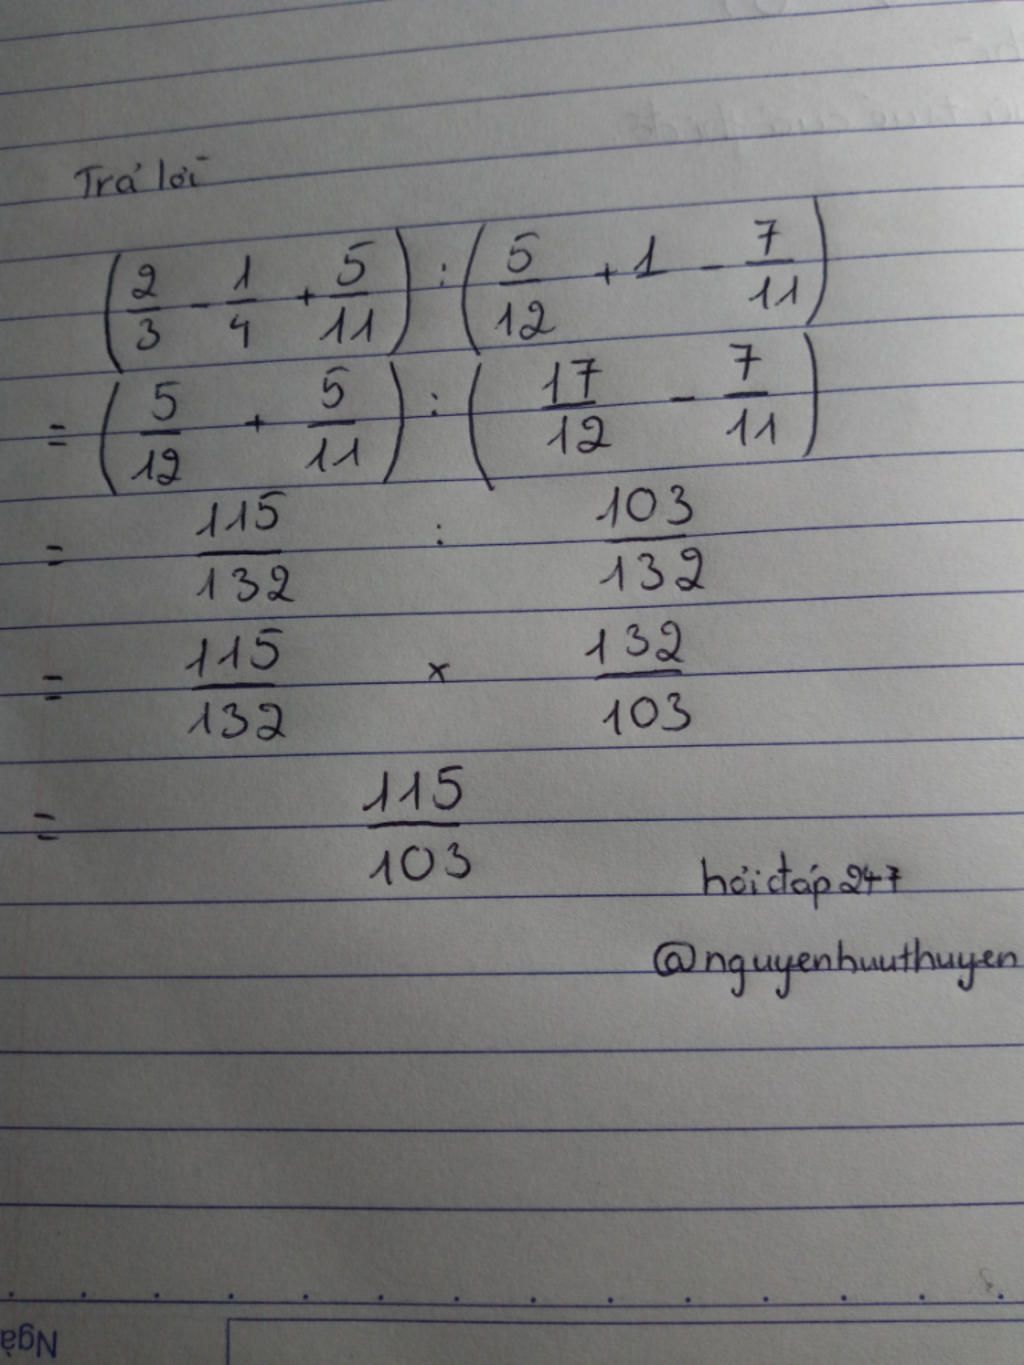 Trả lời
(2/3 - 1/4 + 5/11) : (5/12 + 1 - 7/11)
= (5/12 + 5/11) : (17/12 - 7/11)
= 115/132 : 103/132
= 115/132 × 132/103
= 115/103
hỏi đáp 247
@nguyenhuuthuyen
Ngà